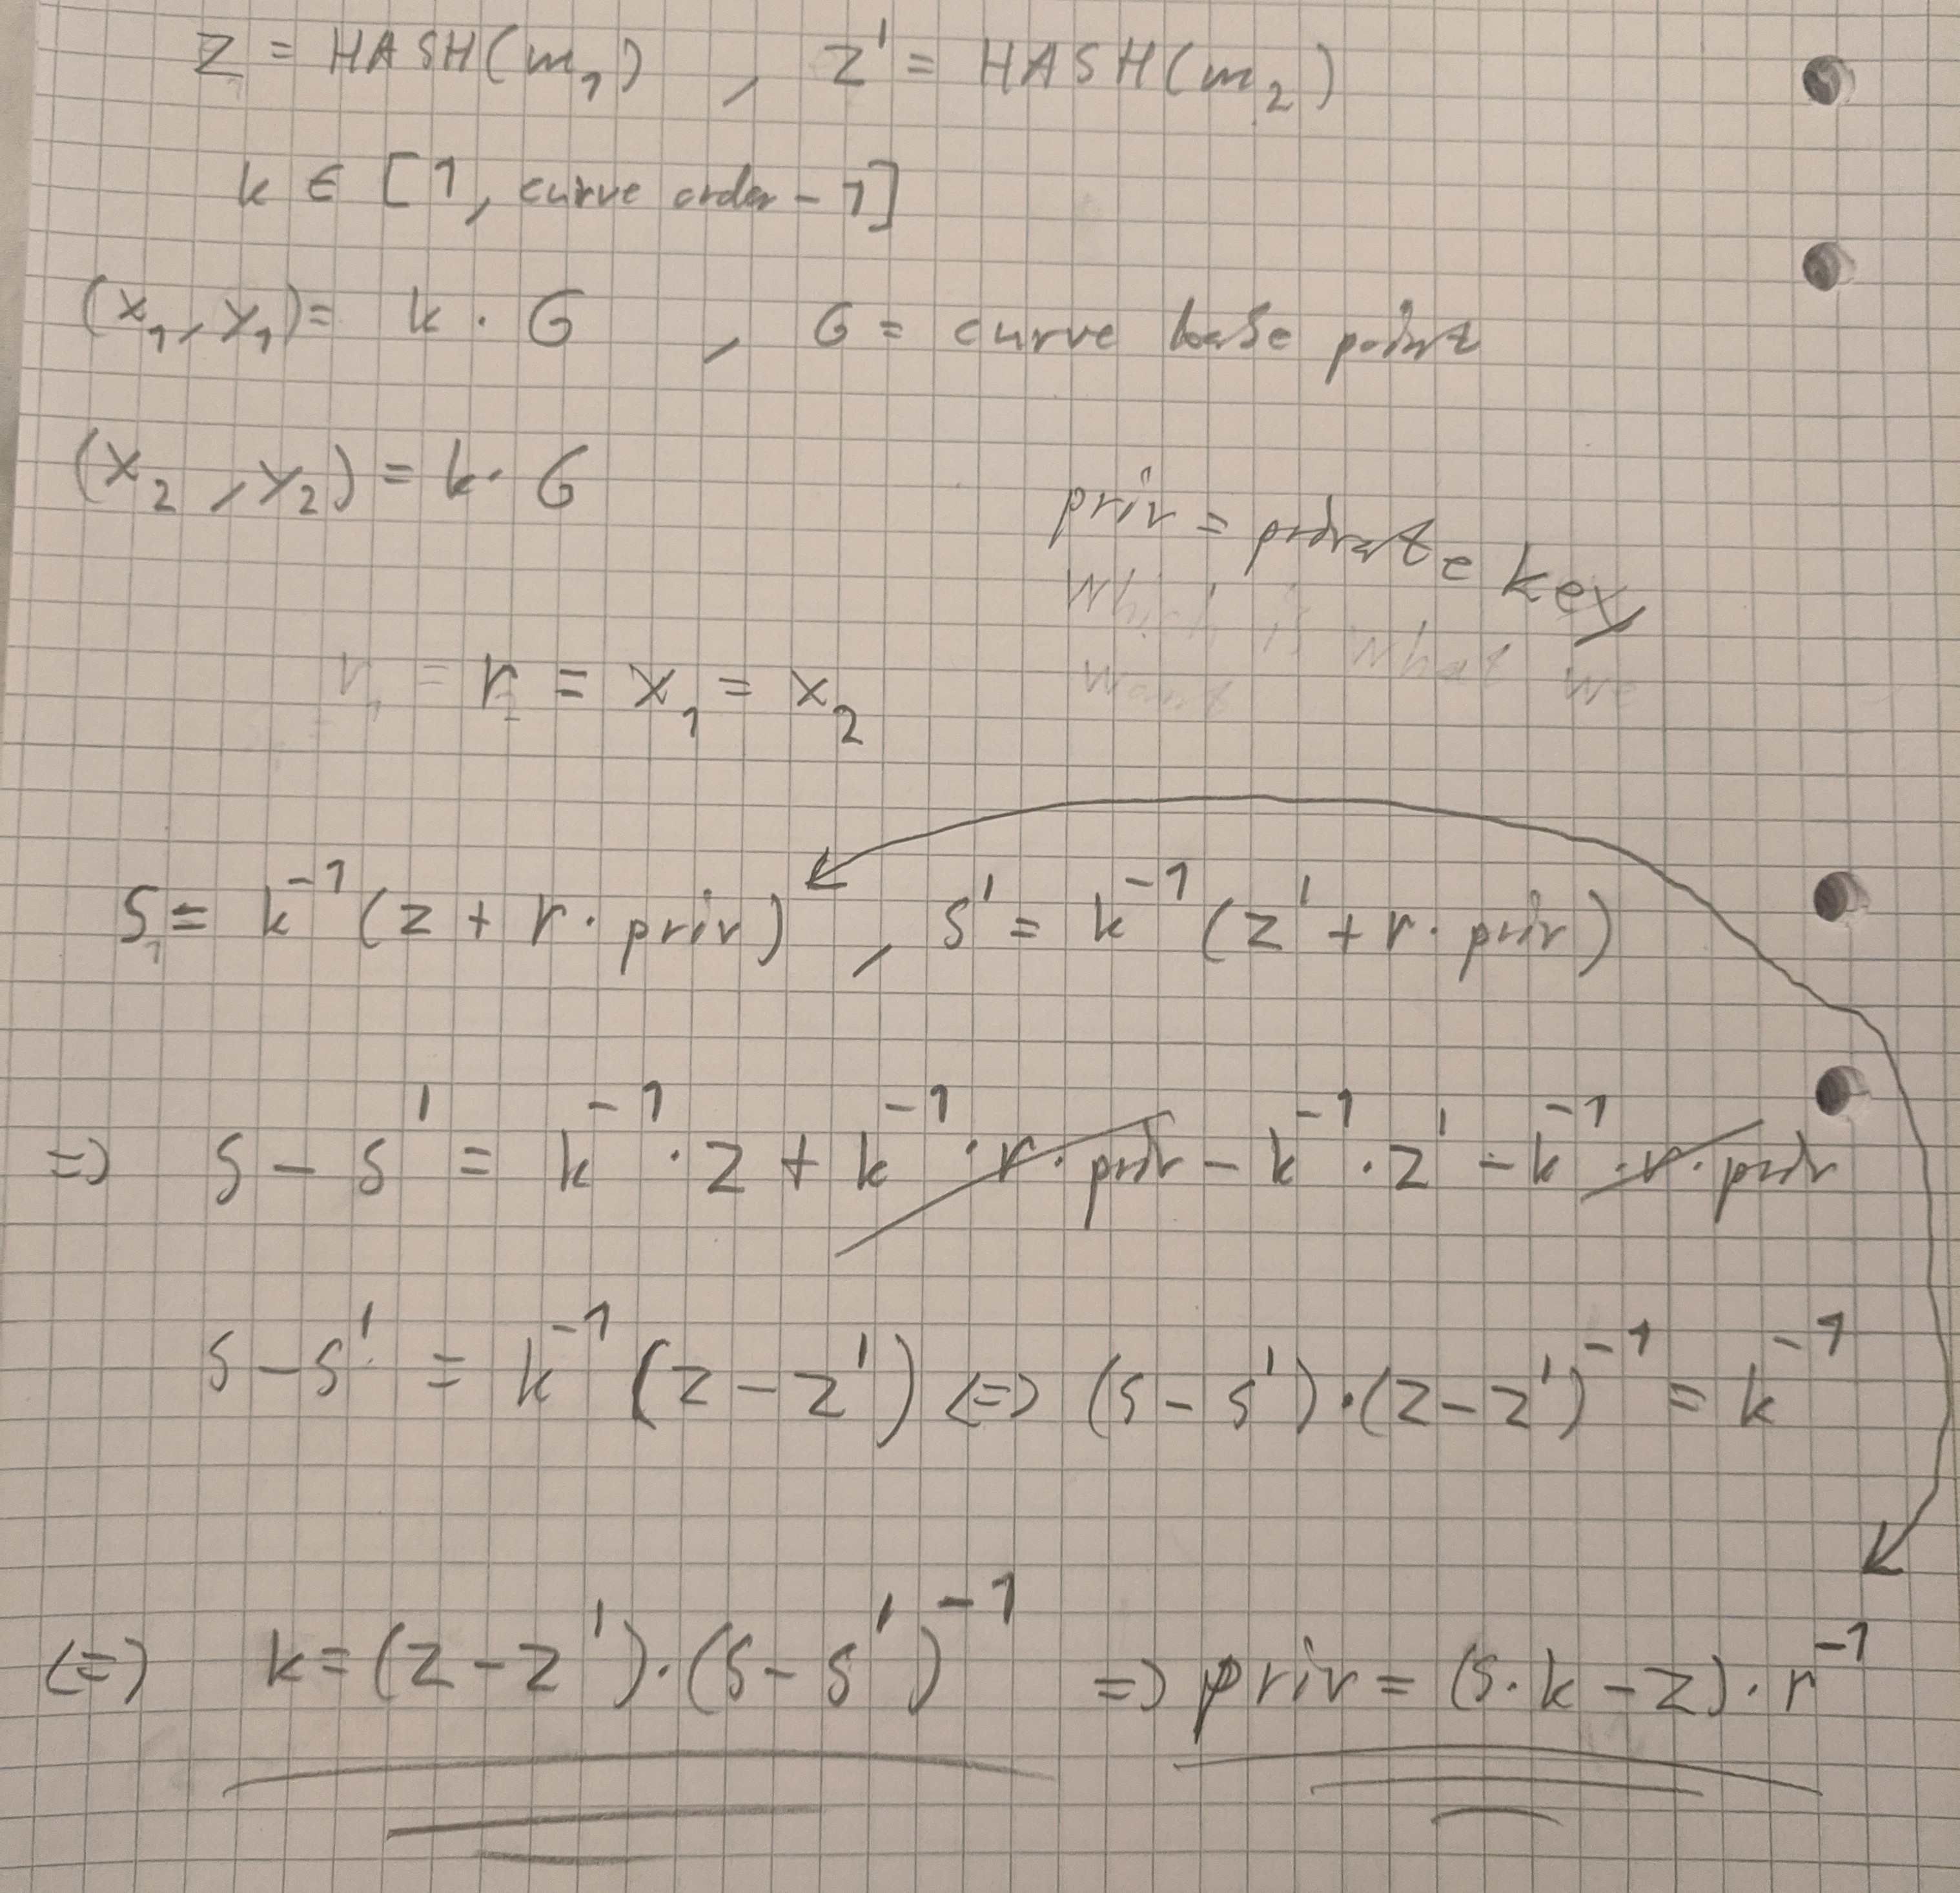 z = HASH(m₁) , z' = HASH(m₂)
k ∈ [1, curve order - 1]
(x₁, y₁) = k · G , G = curve base point
(x₂, y₂) = k · G
priv = private key
which is what we
want
r₁ = r₂ = x₁ = x₂
S₁ = k⁻¹(z + r · priv) , s' = k⁻¹(z' + r · priv)
=> s - s' = k⁻¹ · z + k⁻¹ · r · priv - k⁻¹ · z' - k⁻¹ · r · priv
s - s' = k⁻¹(z - z') <=> (s - s') · (z - z')⁻¹ = k⁻¹
<=> k = (z - z') · (s - s')⁻¹ => priv = (s · k - z) · r⁻¹